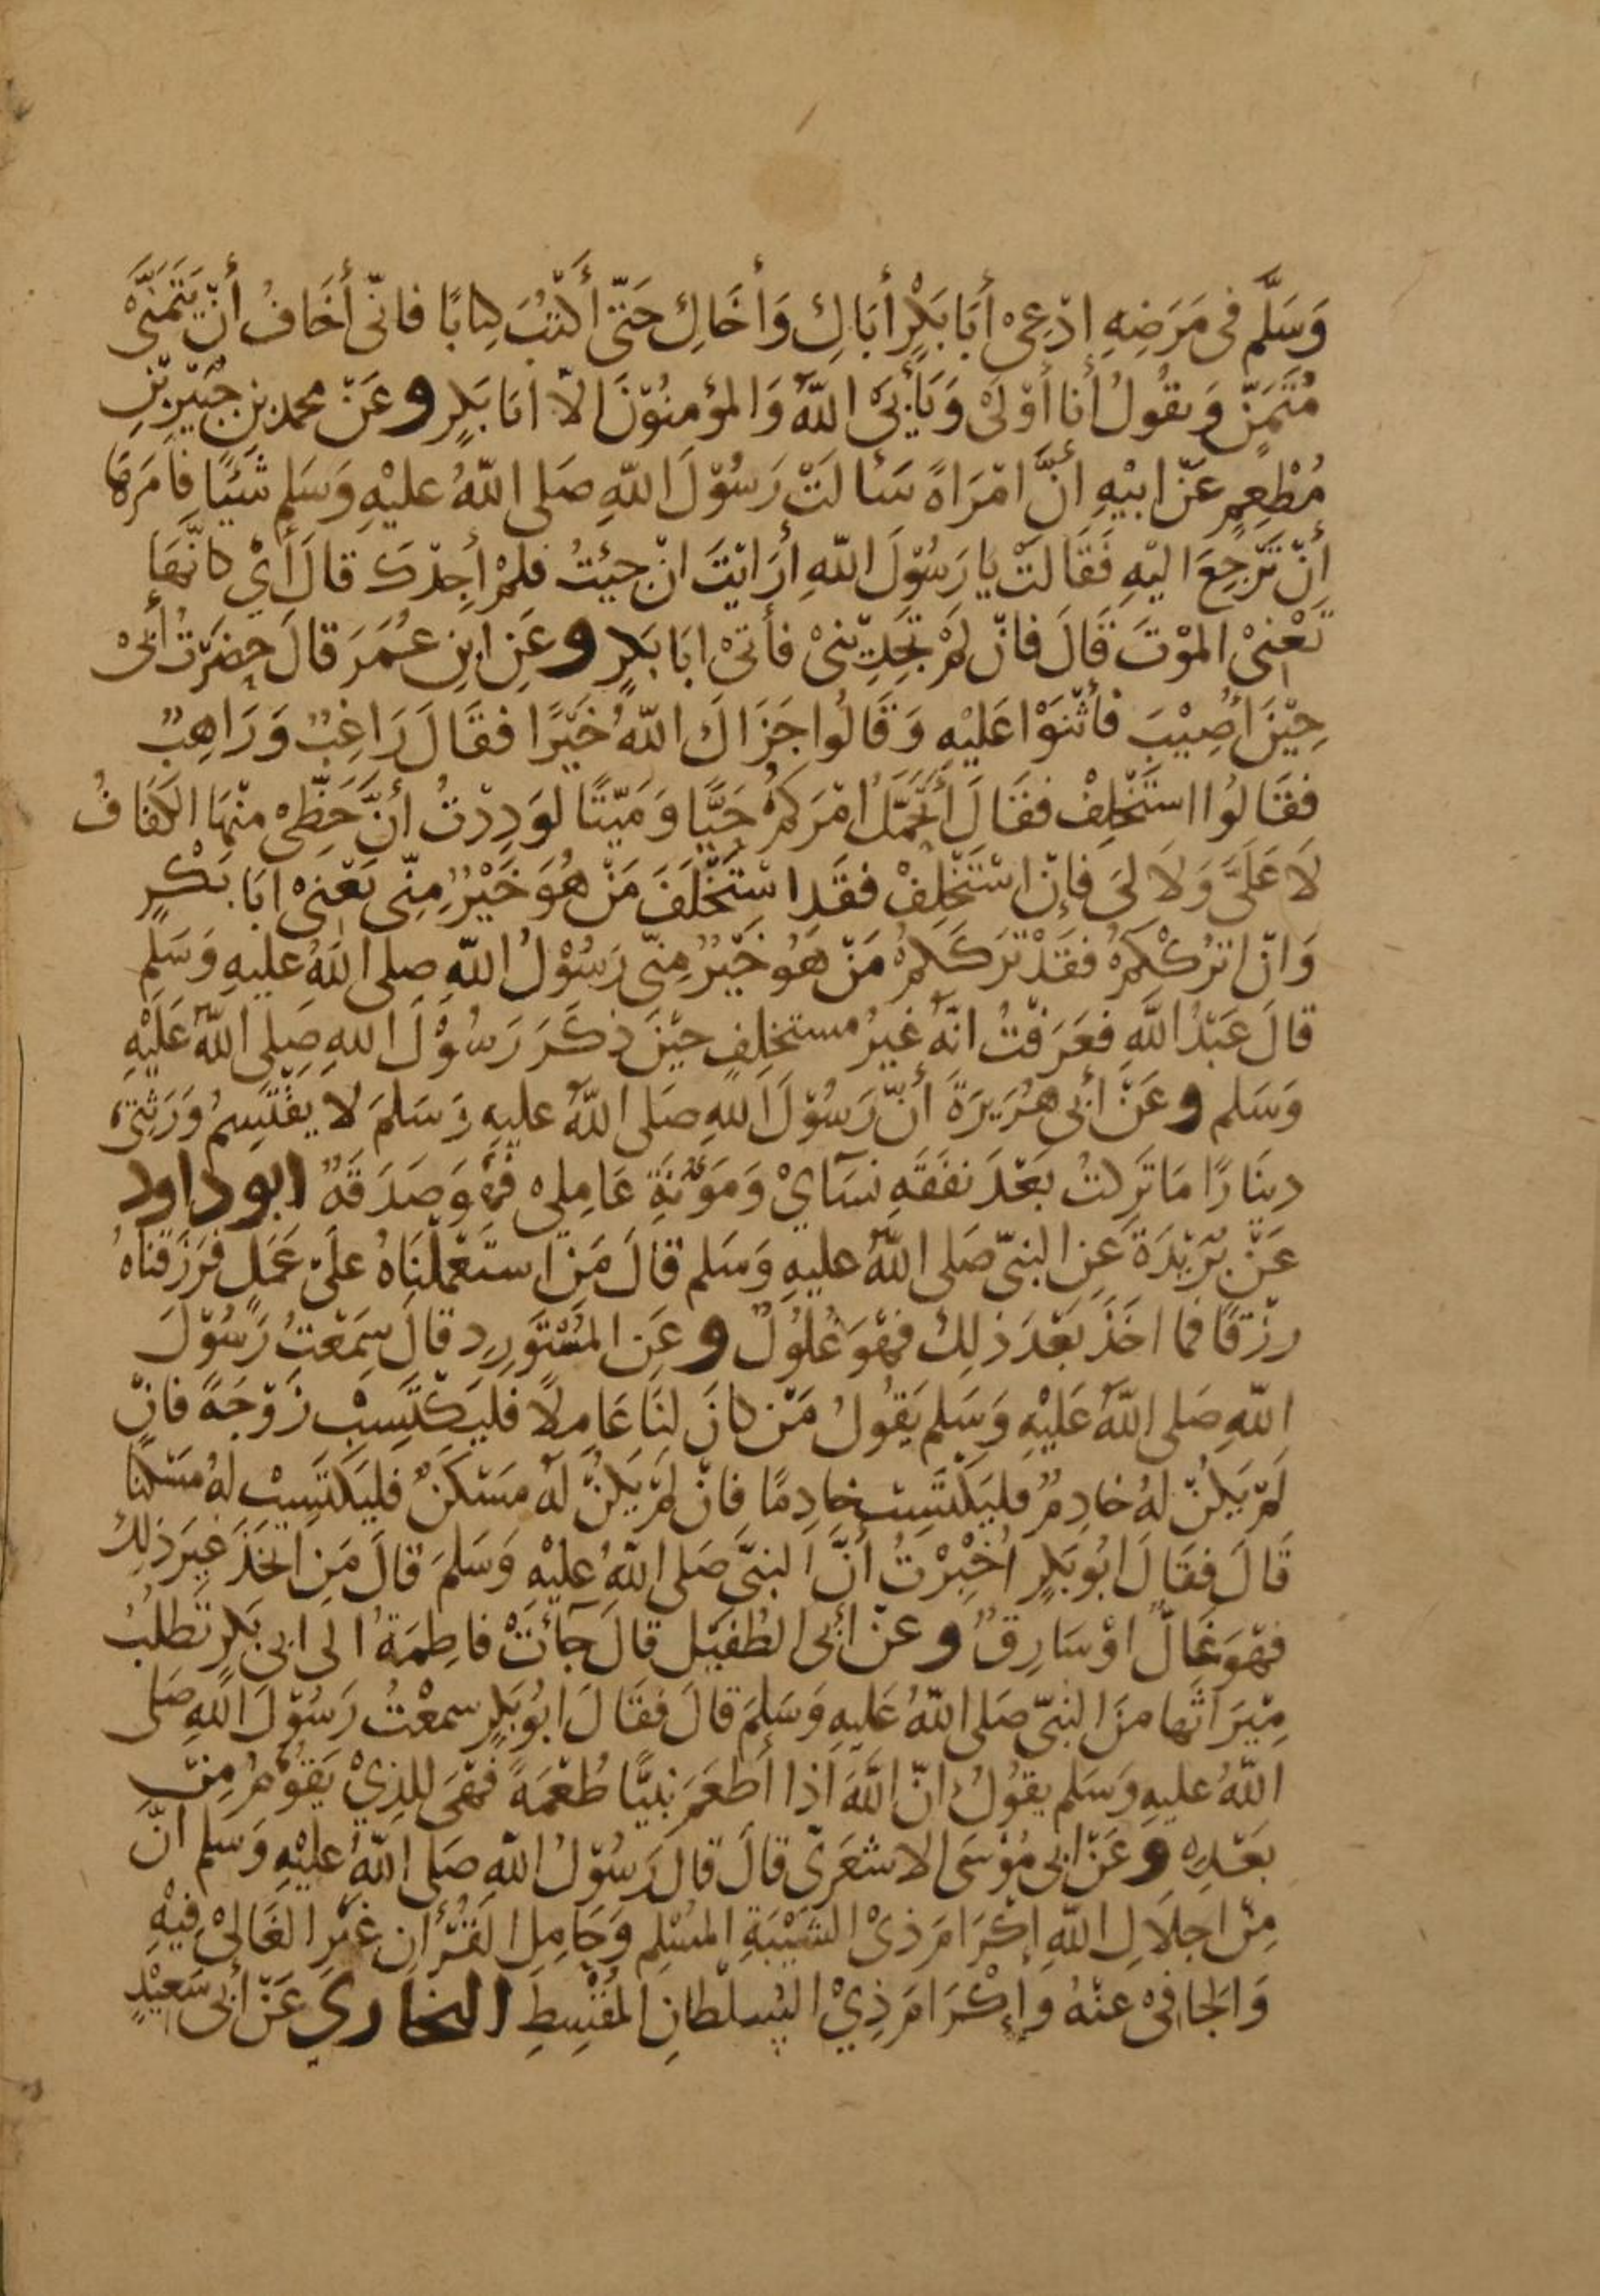 وَسَلَّم فى مَرَضِهِ ادْعِىْ أَبَا بَكْرٍ أَبَاكِ وَأَخَاكِ حَتّىٰ أَكْتُبَ كِتَابًا فانّى أَخَافُ أَنْ يَتَمَنَّىٰ
مُتَمَنٍّ وَيقُولُ أنا أَوْلَى وَيَأْبَىَ اللّهُ وَالمؤمِنُوْنَ الاّ ابَا بَكرٍ وعَنْ محمدِ بنِ جُبَيْرِ بْنِ
مُطْعِمٍ عَنْ ابيْهِ أنَّ امْرَاةً سَأَلَتْ رَسُوْلَ اللّهِ صَلى اللّهُ عليْهِ وَسَلم شَيْئًا فامَرَهَا
أنْ تَرْجِعَ اليْهِ فَقَالَتْ يا رَسُوْلَ اللّهِ أرَايْتَ انْ جِئتُ فلمْ أجِدْكَ قالَ أَيْ كانَّهَا
تَعْنِىْ الموْتَ قَالَ فانْ لَمْ تَجِدِيْنىْ فأتىْ ابَا بَكرٍ وعَنِ ابنِ عُمَرَ قالَ حضَرْتُ أبىْ
حِيْنَ أُصِيْبَ فأَثْنَوْا عَلَيْهِ وَقَالُوا جَزَاكَ اللّهُ خَيْرًا فقَالَ رَاغِبٌ وَرَاهِبٌ
فقَالُوا استَخْلِفْ فقَالَ أَتَحَمَّلُ امْرَكمْ حَيًّا وَمَيّتًا لوَدِدْتُ أنَّ حَظِّىْ منْهَا الكَفَافُ
لاَ عَلَىَّ وَلاَ لىَ فإنْ اسْتَخْلِفْ فقَد اسْتَخْلَفَ مَنْ هُوَ خَيْرٌ مِنّى يَعْنىْ ابَا بَكْرٍ
وَانْ اترُكْكُمْ فقَدْ تَرَكَكُمْ مَنْ هُوَ خَيْرٌ مِنّى رَسُوْلُ اللّهِ صلى اللّهُ عليهِ وَسَلم
قالَ عَبْدُ اللّهِ فعَرَفْتُ انّهُ غيرُ مستخلِفٍ حيْنَ ذكَرَ رَسُوْلَ اللهِ صِلى اللّهُ عَلَيْهِ
وَسَلم وعَنْ أبى هُرَيرَةَ أنَّ رَسُوْلَ اللهِ صَلى اللّهُ عليهِ وَسَلمَ لا يقْتَسِمُ وَرَثتىْ
دينَارًا مَا تَركتُ بَعْدَ نفَقَهِ نسَآئِيْ وَمَؤُنَةِ عَامِلى فهُوَ صَدَقَهٌ ابوداود
عَنْ بُرَيْدَةَ عَنِ النبىّ صَلى اللّهُ عليهِ وَسَلم قالَ مَنِ استَعْمَلْنَاهُ علىَ عَمَلٍ فرَزَقناهُ
رِزْقًا فما اخَذَ بَعْدَ ذلِكَ فهُوَ غُلُولٌ وعَنِ المسْتَوْرِدِ قالَ سِمَعْتُ رَسُوْلَ
اللّهِ صَلى اللّهُ عَلَيْهِ وَسَلم يَقُولُ مَنْ كانَ لنَا عَامِلاً فليَكْتَسِبْ زَوْجَةً فانْ
لَمْ يَكنْ لهُ خادِمٌ فليَكْتَسِبْ خادِمًا فانْ لَمْ يَكنْ لهُ مَسْكَنٌ فليَكتَسِبْ لهُ مَسْكنًا
قَالَ فقَالَ ابُو بَكرٍ اُخْبِرْتُ أنَّ النبىَّ صَلى اللّهُ عليْهِ وَسَلمَ قالَ مَنِ اتخَذَ غيرَ ذلِكَ
فهُوَ غَالٌّ اوْ سَارِقٌ وعَنْ أبى الطُفَيْلِ قالَ جَآئَتْ فاطِمَةُ الى ابى بَكرٍ تَطلُبُ
مِيْرَاثَها منَ النبىّ صَلى اللّهُ عَليهِ وَسَلمَ قالَ فقَالَ ابُو بَكرٍ سمعْتُ رَسُوْلَ اللّهِ صَلى
اللّهُ عليهِ وَسَلم يقُولُ انّ اللّهَ اذا أَطعَمَ نبيًّا طُعْمَةً فهْىَ للذِيْ يَقُوْمُ مِنْ
بعَدِهِ وعَنْ ابى مُوْسَى الاشعَرىّ قالَ قالَ رَسُوْلُ اللّهِ صَلى اللّهُ عليْهِ وَسَلم انّ
مِنْ اجلاَلِ اللّهِ إكْرَامَ ذىْ الشَيْبَةِ المسْلِم وَحَامِلِ القُرْأنِ غيْرِ الغَالِىْ فِيْهِ
وَالجافىْ عنْهُ وإكْرَامَ ذِيْ السُلْطانِ المُقْسِطِ البخاري عَنْ أبى سَعيْدٍ